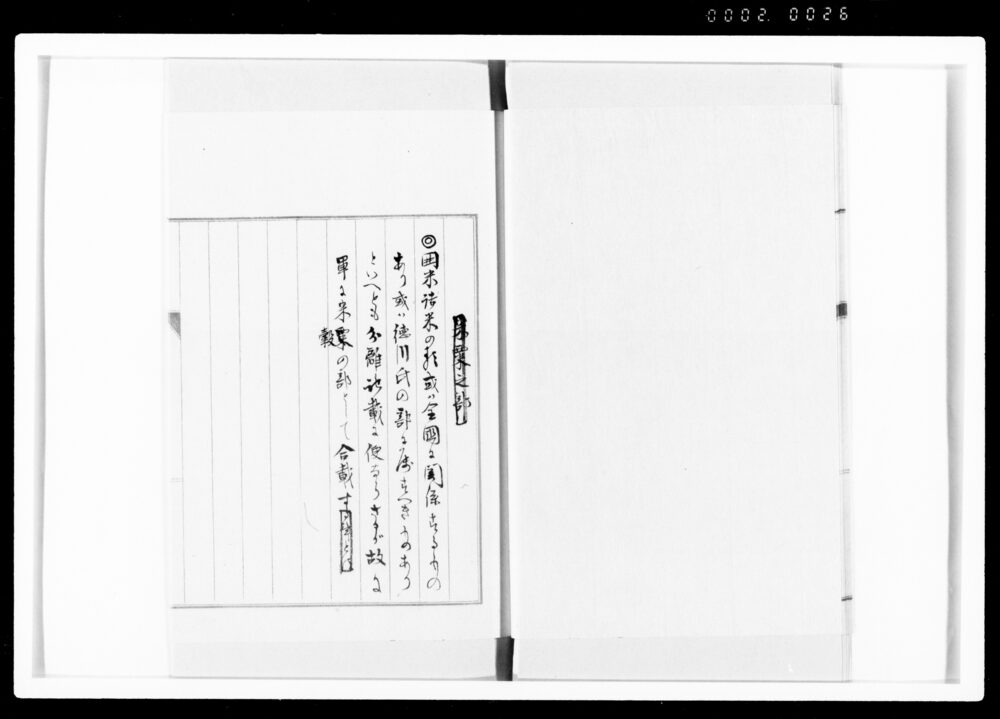 0002. 0026
米粟之部
◎囲米詰米の類或ハ全國に関係するもの
あり或ハ徳川氏の部に属すへきものあり
といへとも分離記載に便ならさるが故に
単に米粟の部として合載す
穀